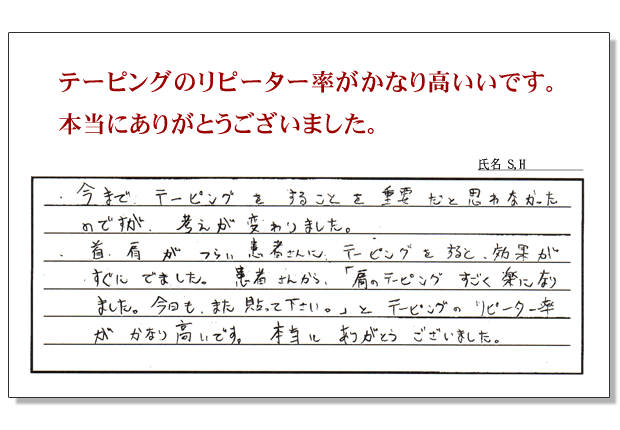 テーピングのリピーター率がかなり高いいです。
本当にありがとうございました。
氏名 S,H
・今まで、テーピングをすることを重要だと思わなかった
のですが、考えが変わりました。
・首、肩がつらい患者さんに、テーピングをすると、効果が
すぐにでました。患者さんから、「肩のテーピングすごく楽になり
ました。今日も、また貼って下さい。」とテーピングのリピーター率
がかなり高いです。本当にありがとうございました。